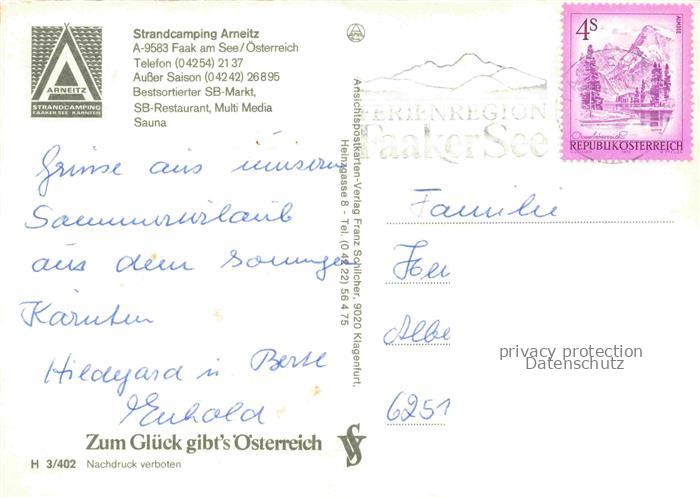 ARNEITZ
STRANDCAMPING
FAAKER SEE KÄRNTEN
Strandcamping Arneitz
A-9583 Faak am See/Österreich
Telefon (04254) 21 37
Außer Saison (04242) 26895
Bestsortierter SB-Markt,
SB-Restaurant, Multi Media
Sauna
Grüsse aus unserem
Sommerurlaub
aus dem sonnigen
Kärnten
Hildegard u.
Zum Glück gibt's Österreich
H 3/402 Nachdruck verboten
Ansichtspostkarten-Verlag Franz Schilcher, 9020 Klagenfurt,
Heinzgasse 8 - Tel. (0 42 22) 56 4 75
FERIENREGION
Faaker See
4S
ALMSEE
Oberösterreich
REPUBLIK ÖSTERREICH
Familie
Albe
6251
privacy protection
Datenschutz